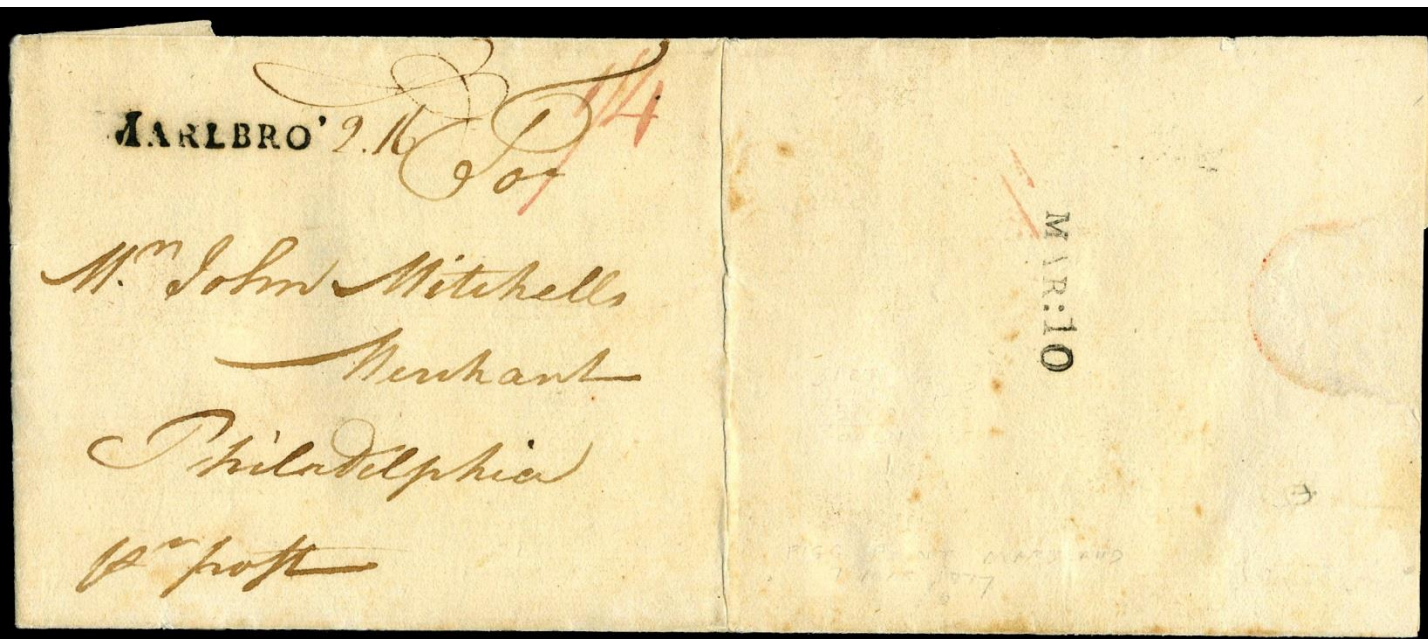 MARLBRO' 2.16
For
1/4
Mr. John Mitchells
Merchant
Philadelphia
pr post
MAR:10